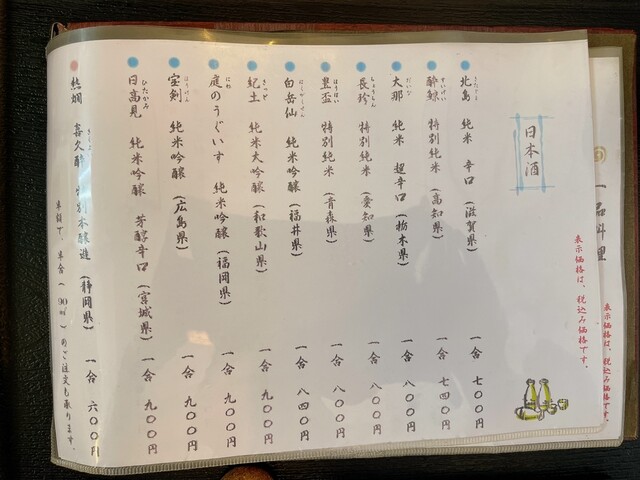 一品料理
表示価格は、税込み価格です。
日本酒
表示価格は、税込み価格です。
北島 純米 辛口 (滋賀県) 一合 七〇〇円
酔鯨 すいげい 特別純米 (高知県) 一合 七四〇円
大那 だいな 純米 超辛口 (栃木県) 一合 八〇〇円
長珍 ちょうちん 特別純米 (愛知県) 一合 八〇〇円
豊盃 ほうはい 特別純米 (青森県) 一合 八〇〇円
白岳仙 はくがくせん 純米吟醸 (福井県) 一合 八四〇円
紀土 きっど 純米大吟醸 (和歌山県) 一合 九〇〇円
庭のうぐいす にわ 純米吟醸 (福岡県) 一合 九〇〇円
宝剣 ほうけん 純米吟醸 (広島県) 一合 九〇〇円
日高見 ひたかみ 純米吟醸 芳醇辛口 (宮城県) 一合 九〇〇円
熱燗 喜久酔 特別本醸造 (静岡県) 一合 六〇〇円
半合 (90㎖) のご注文も承ります。